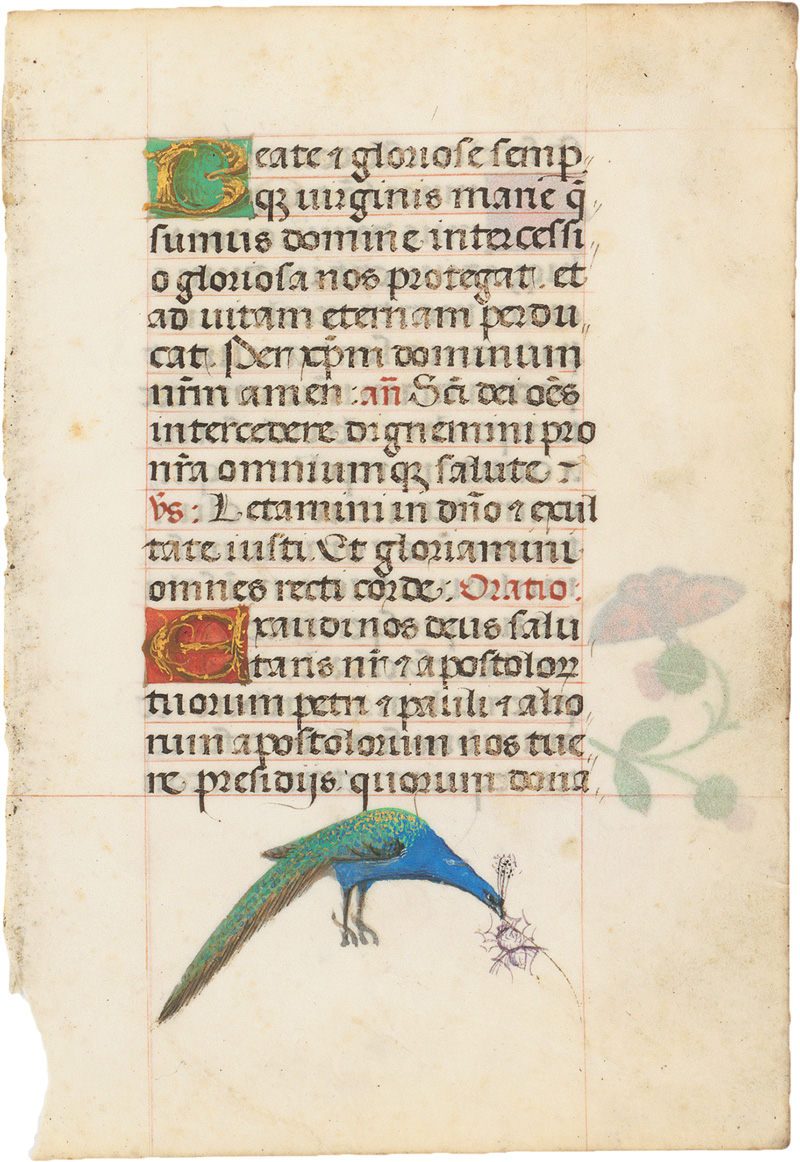 Beate ⁊ gloriose semꝑ
qꝫ uirginis marie q̄
sumus domine intercessi
o gloriosa nos protegat. et
ad uitam eternam perdu
cat. Per xp̄m dominum
nr̄m amen: an̄ Sc̄i dei oēs
intercedere dignemini pro
nr̄a omniumqꝫ salute
v̄s: Letamini in dn̄o ⁊ exul
tate iusti. Et gloriamini
omnes recti corde: Oratio:
Exaudi nos deus salu
taris nr̄ ⁊ apostoloꝝ
tuorum petri ⁊ pauli ⁊ alio
rum apostolorum nos tue
re presidijs quorum dona